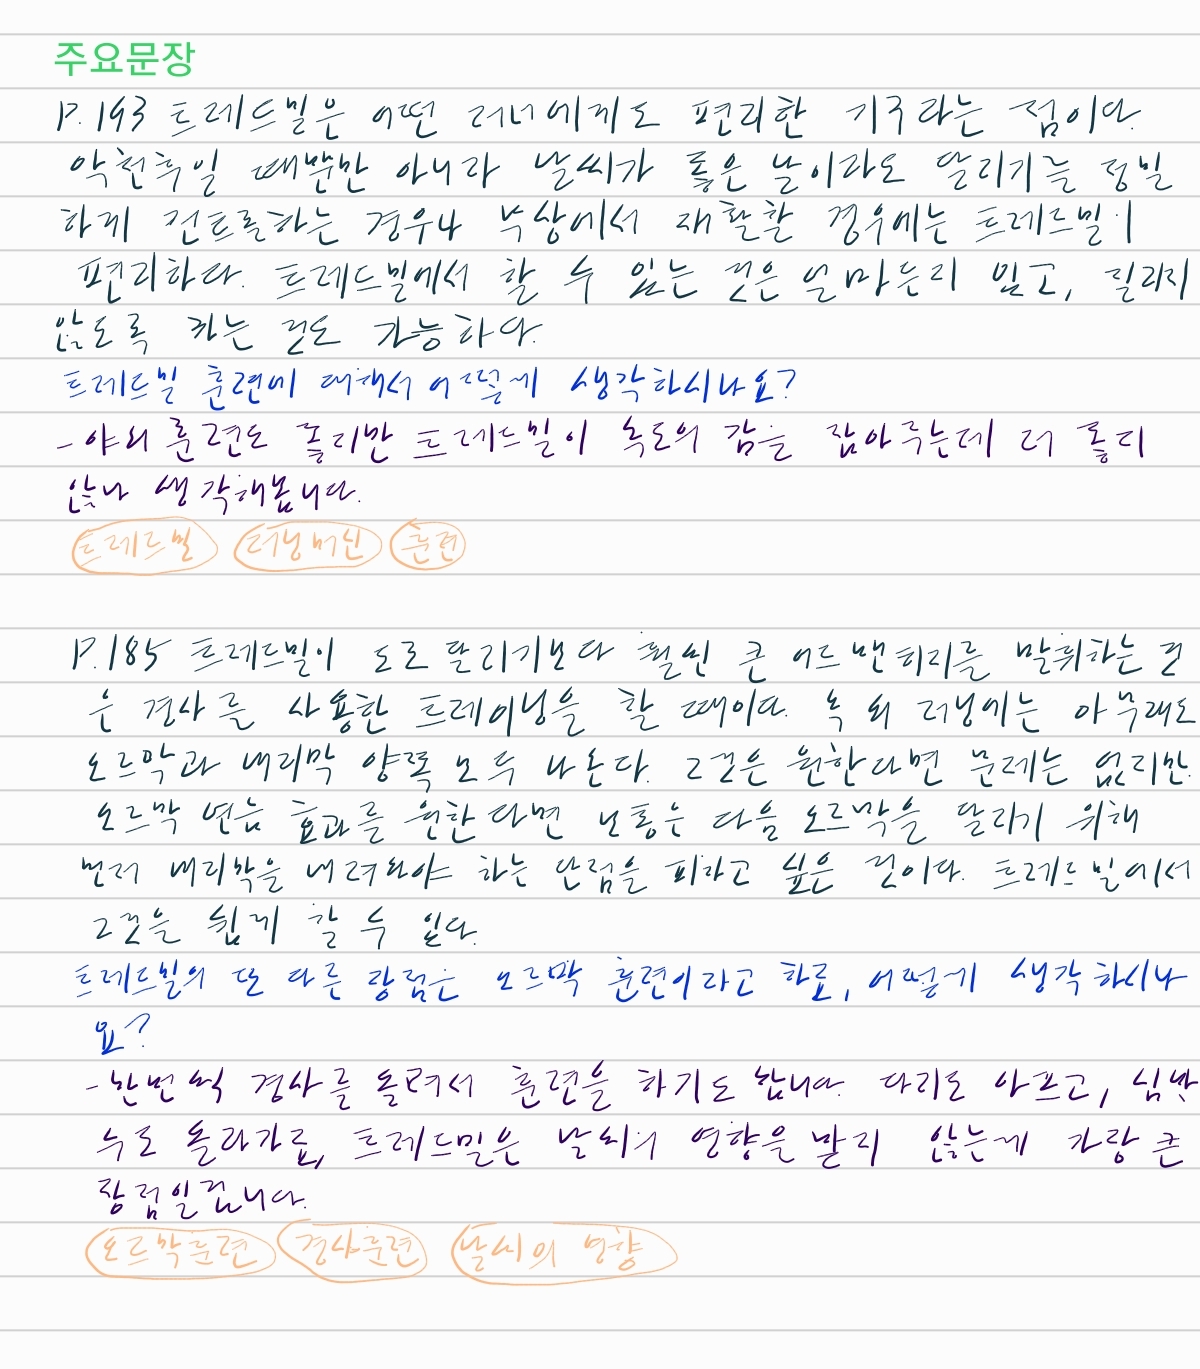 주요문장
P.193 트레드밀은 어떤 러너에게도 편리한 기구라는 점이다.
악천후일 때뿐만 아니라 날씨가 좋은 날이라도 달리기를 정밀
하게 컨트롤하는 경우나 부상에서 재활할 경우에는 트레드밀이
편리하다. 트레드밀에서 할 수 있는 것은 얼마든지 있고, 질리지
않도록 하는 것도 가능하다.
트레드밀 훈련에 대해서 어떻게 생각하시나요?
- 야외 훈련도 좋지만 트레드밀이 속도의 감을 잡아주는데 더 좋지
않나 생각해봅니다.
트레드밀 러닝머신 훈련
P.185 트레드밀이 도로 달리기보다 훨씬 큰 어드밴티지를 발휘하는 것
은 경사를 사용한 트레이닝을 할 때이다. 옥외 러닝에는 아무래도
오르막과 내리막 양쪽 모두 나온다. 그것을 원한다면 문제는 없지만
오르막 연습 효과를 원한다면 보통은 다음 오르막을 달리기 위해
먼저 내리막을 내려와야 하는 단점을 피하고 싶은 것이다. 트레드밀에서
그것을 쉽게 할 수 있다.
트레드밀의 또 다른 장점은 오르막 훈련이라고 하죠, 어떻게 생각하시나
요?
- 한번씩 경사를 올려서 훈련을 하기도 합니다. 다리도 아프고, 심박
수도 올라가죠, 트레드밀은 날씨의 영향을 받지 않는게 가장 큰
장점일겁니다.
오르막훈련 경사훈련 날씨의 영향